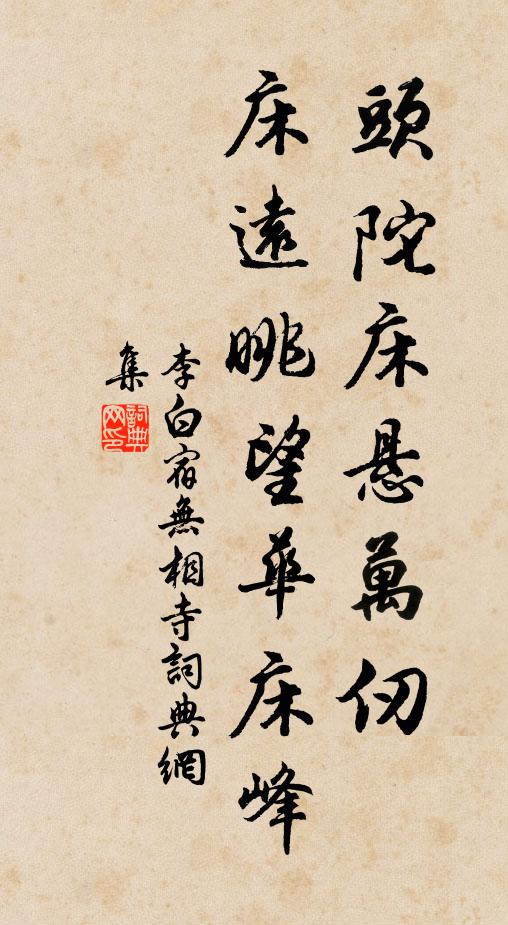 頭陀床悬萬仞
床遠眺望華床峰
李白宿無相寺詞典網
集
詞典
网印